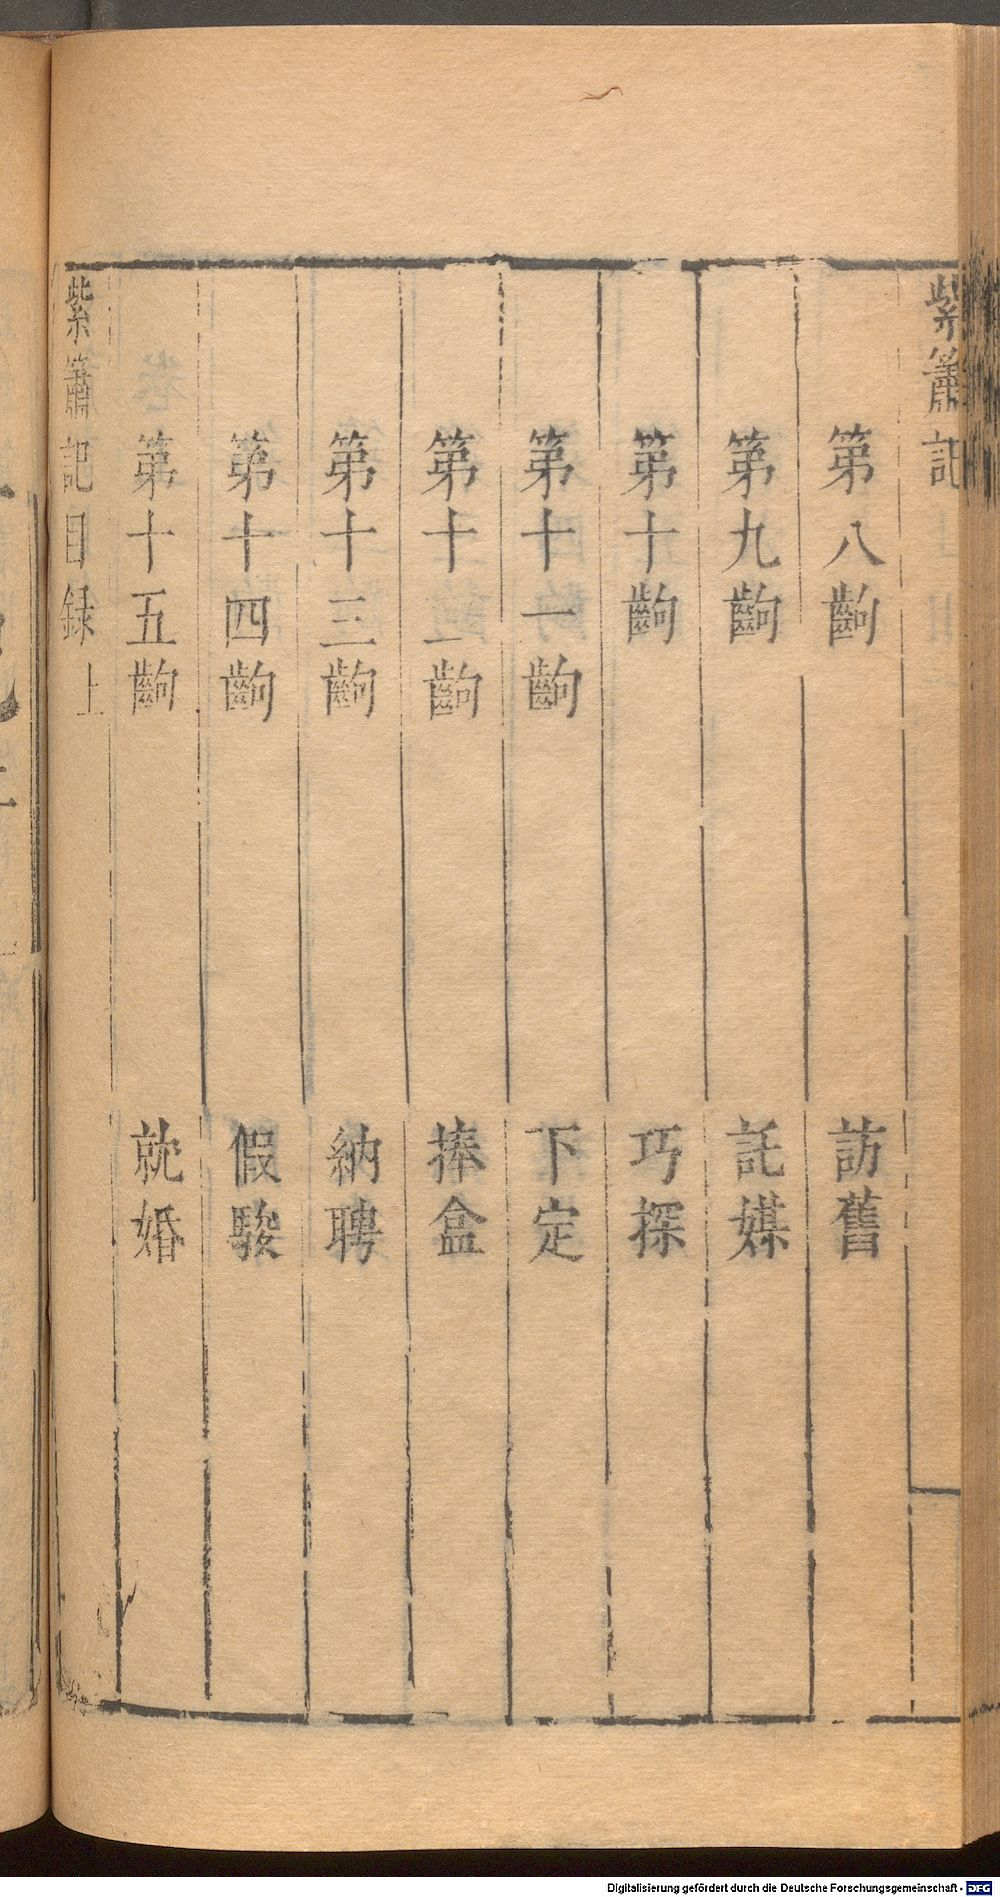 紫簫記
第八齣 訪舊
第九齣 託媒
第十齣 巧探
第十一齣 下定
第十二齣 捧盒
第十三齣 納聘
第十四齣 假駿
第十五齣 就婚
紫簫記目録 上
Digitalisierung gefördert durch die Deutsche Forschungsgemeinschaft - DFG